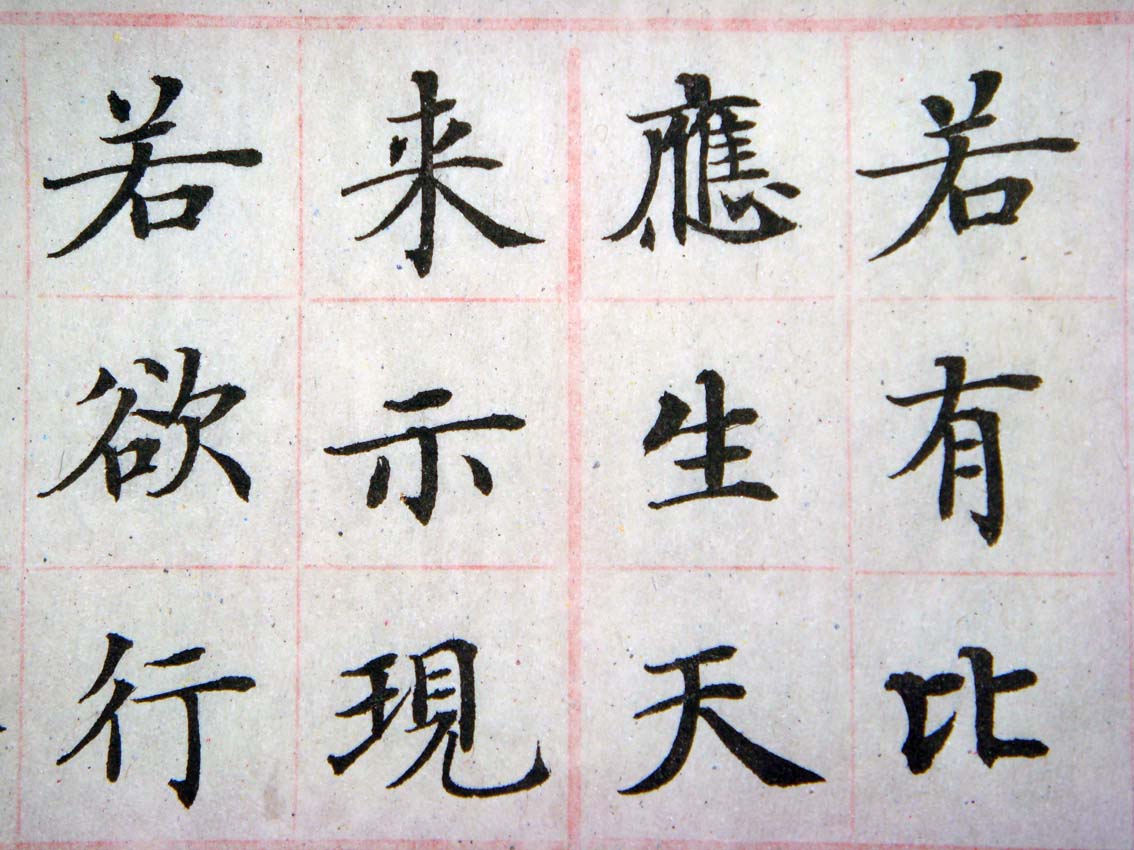 若有比
應生天
来示現
若欲行